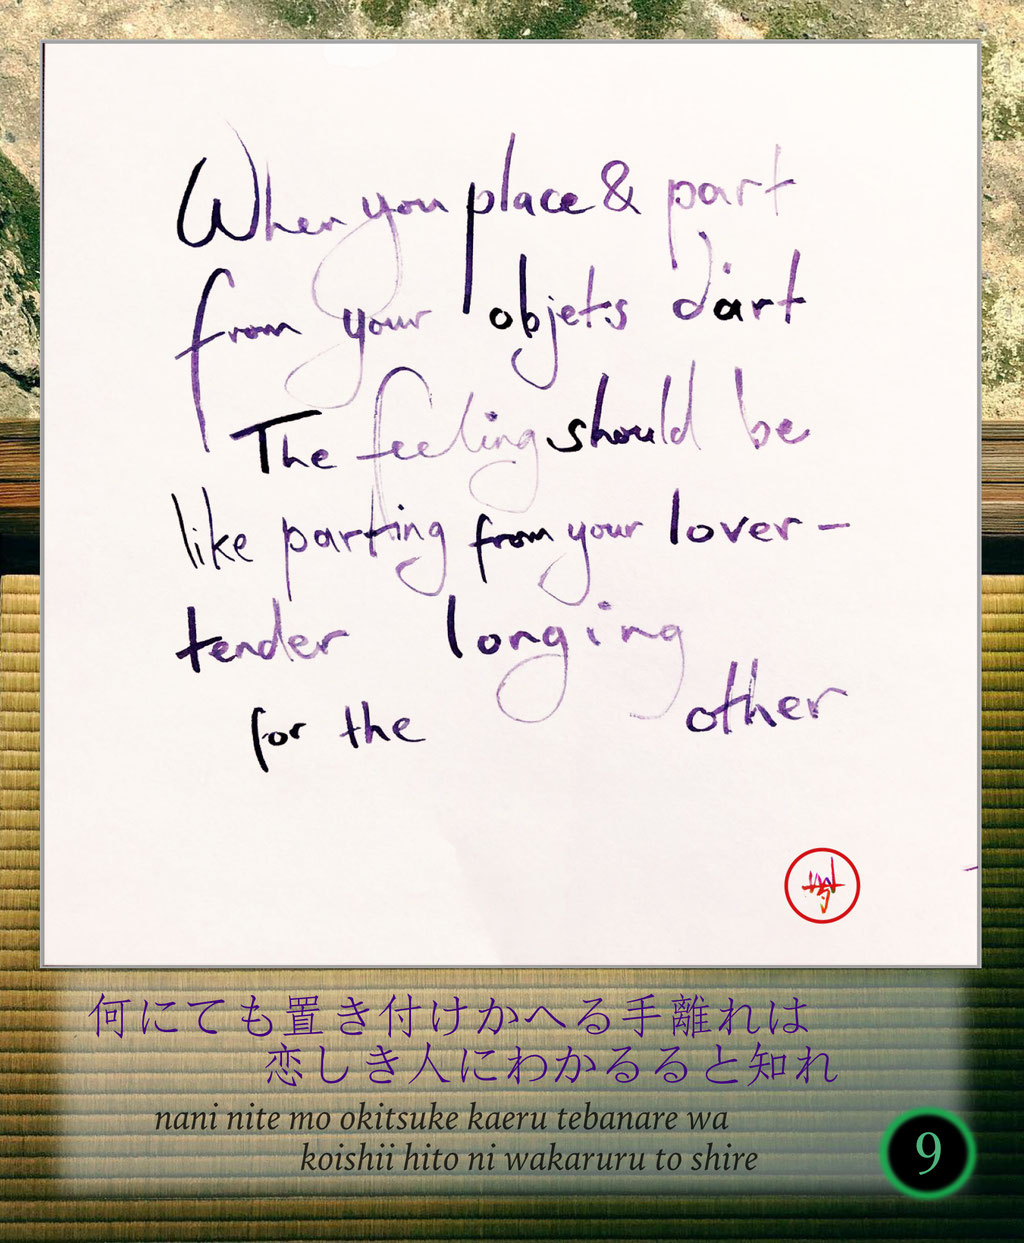 When you place & part
from your objets d'art
The feeling should be
like parting from your lover –
tender longing
for the other
何にても置き付けかへる手離れは
恋しき人にわかるると知れ
nani nite mo okitsuke kaeru tebanare wa
koishii hito ni wakaruru to shire
9